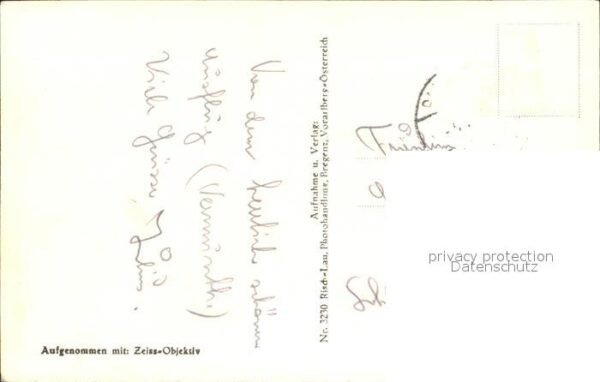 Von dem herrlich schönen
Ausflug (Vermunt)
Viele Grüsse
Aufnahme u. Verlag:
Nr. 3230 Risch-Lau, Photohandlung, Bregenz, Vorarlberg-Österreich
Aufgenommen mit: Zeiss-Objektiv
privacy protection
Datenschutz